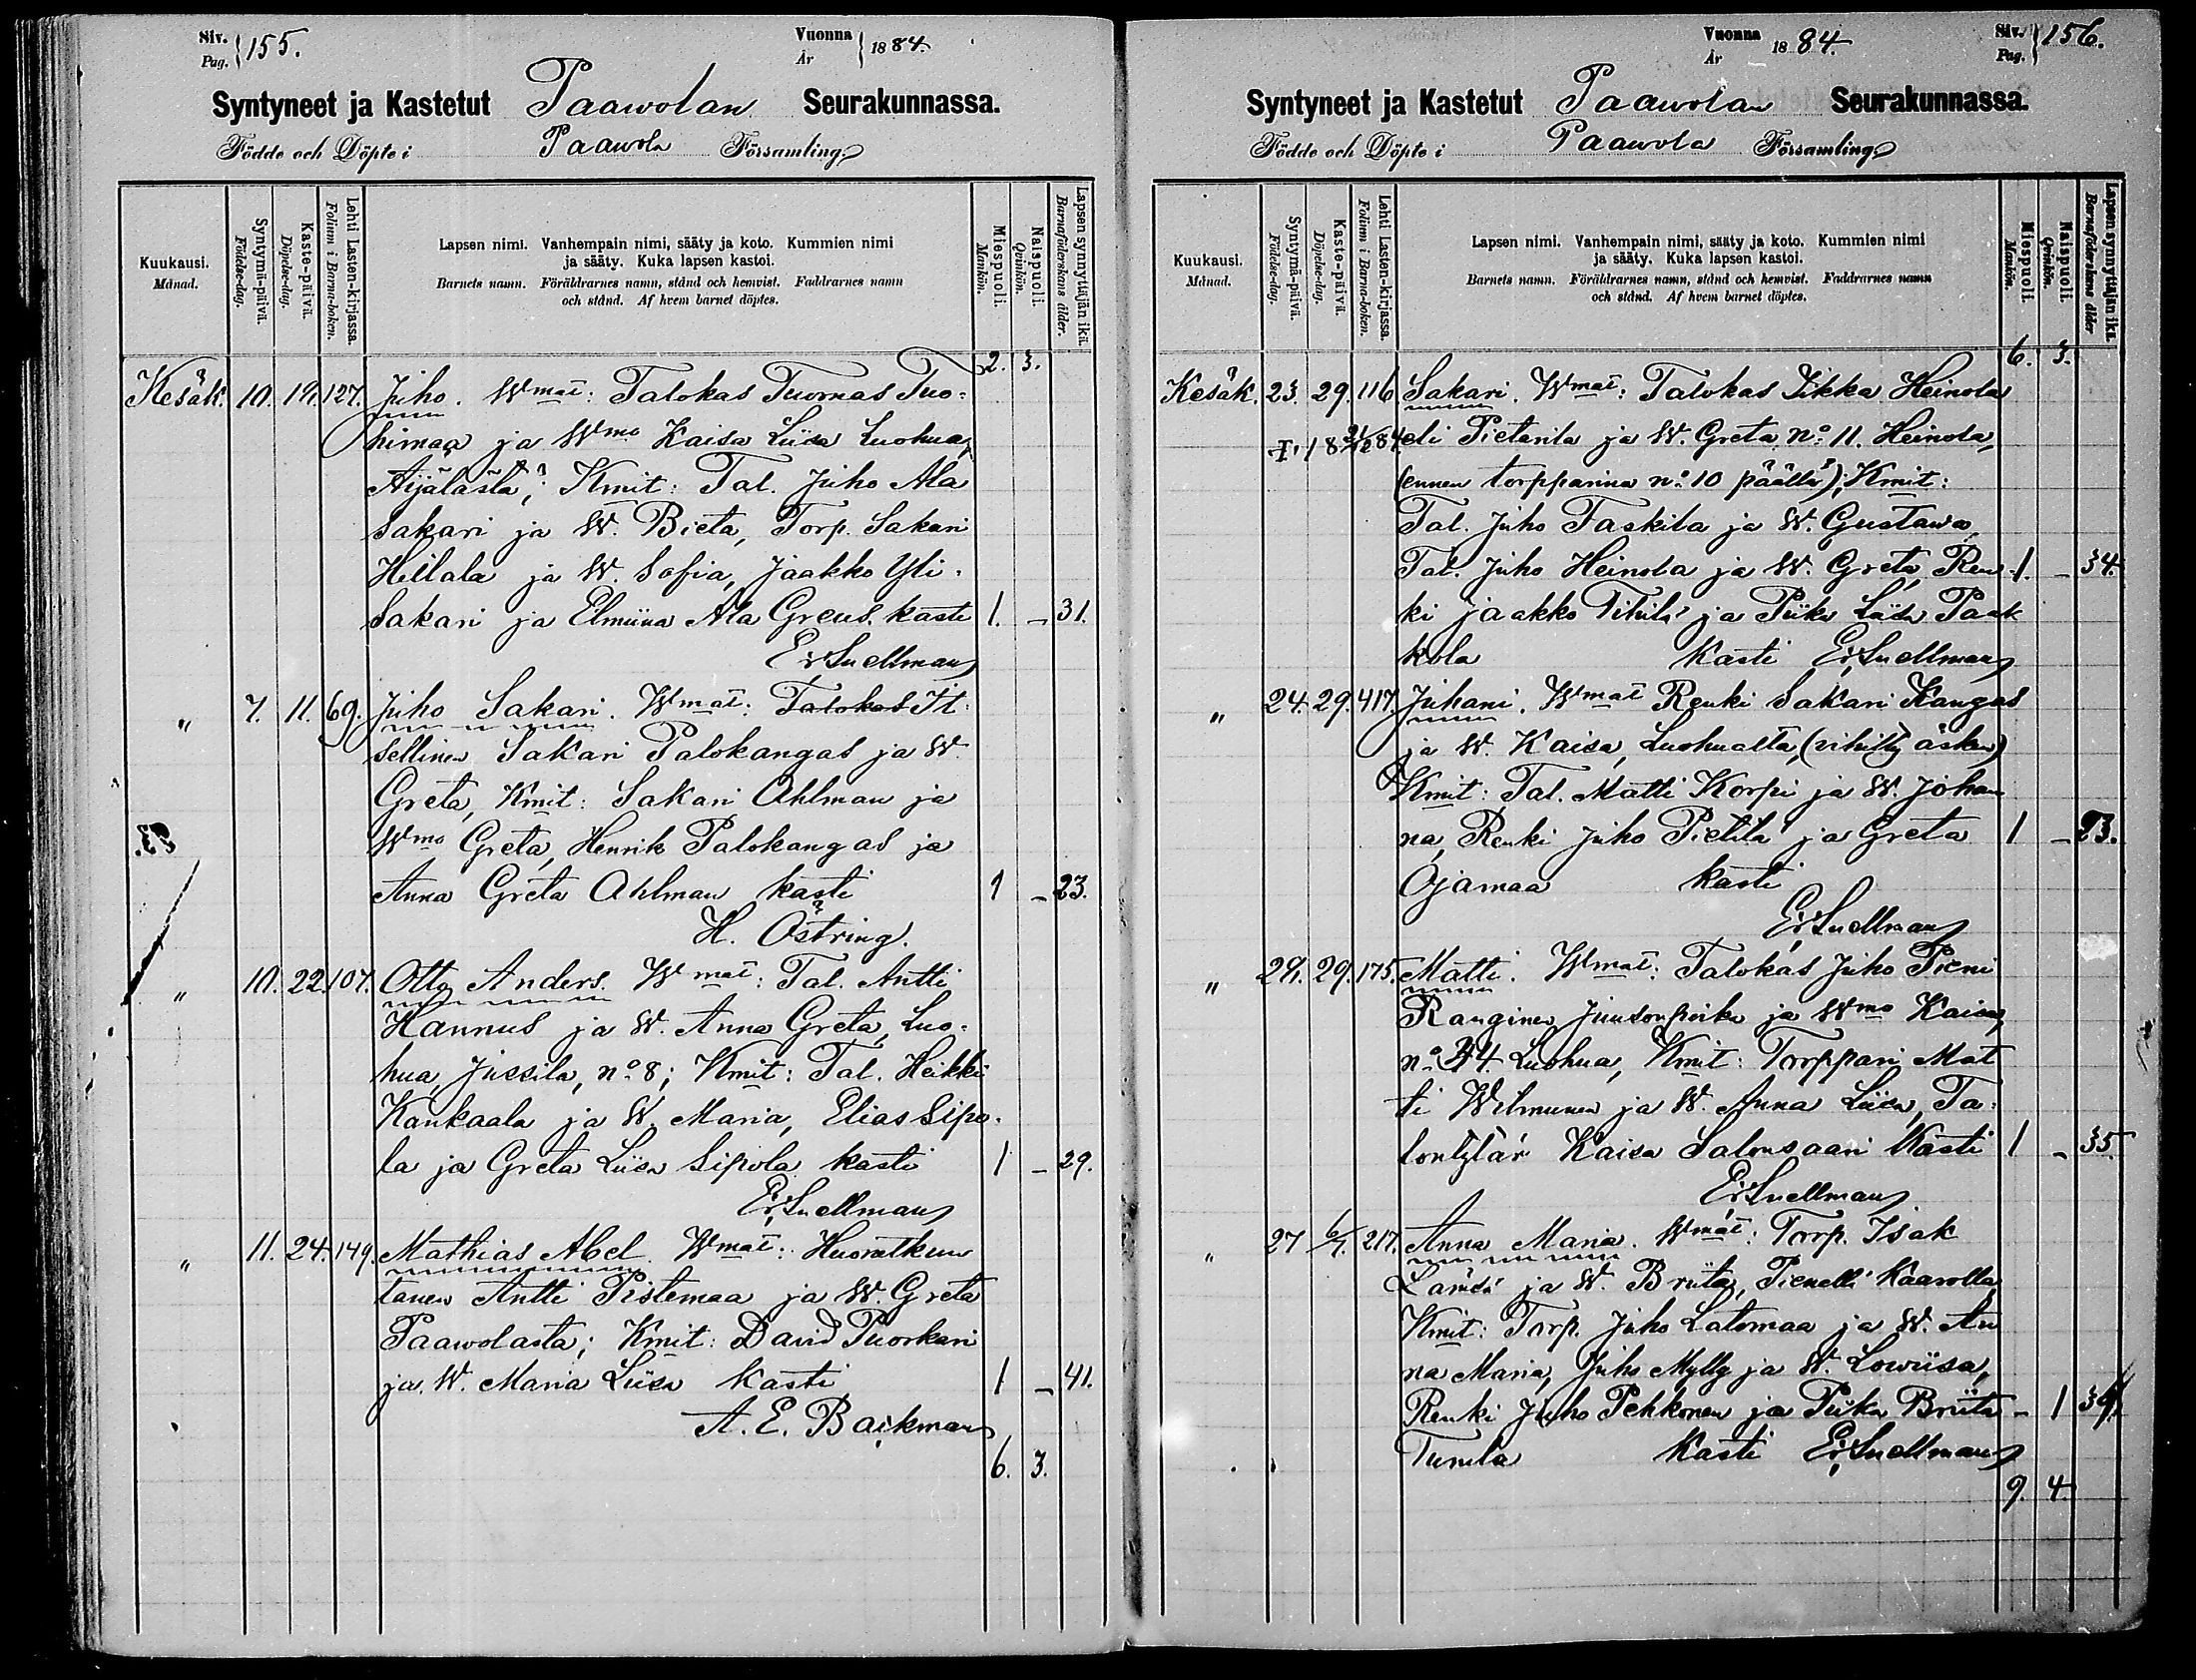 Siv. Pag. 155.
Vuonna År 1884.
Syntyneet ja Kastetut Paawolan Seurakunnassa.
Födde och Döpte i Paawola Församling
Kuukausi. Månad.
Syntymä-päivä. Födelse-dag.
Kaste-päivä. Döpelse-dag.
Lehti Lasten-kirjassa. Folium i Barna-boken.
Lapsen nimi. Vanhempain nimi, sääty ja koto. Kummien nimi
ja sääty. Kuka lapsen kastoi.
Barnets namn. Föräldrarnes namn, stånd och hemvist. Faddrarnes namn
och stånd. Af hvem barnet döptes.
Miespuoli. Mankön.
Naispuoli. Qvinkön.
Lapsen synnyttäjän ikä. Barnaföderskans ålder.
2. 3.
Kesäk. 10. 19. 127. Juho. Wmat: Talokas Tuomas Tuo-
himaa ja Wmo Kaisa Liisa Luohua,
Äijälästä; Kmit: Tal. Juho Ala
sakari ja W. Brita, Torp. Sakari
Hillala ja W. Sofia, Jaakko Yli-
Sakari ja Elmiina Ala Greus. kasti 1. – 31.
E. Snellman
" 7. 11. 69. Juho Sakari. Wmat: Talokas It-
sellinen Sakari Palokangas ja W.
Greta, Kmit: Sakari Ahlman ja
Wmo Greta, Henrik Palokangas ja
Anna Greta Ahlman kasti 1 – 23.
H. Östring.
" 10. 22. 107. Otto Anders. Wmat: Tal. Antti
Hannus ja W. Anna Greta, Luo-
hua, Jussila, no 8; Kmit: Tal. Heikki
Kankaala ja W. Maria, Elias Sipo-
la ja Greta Liisa Sipola kasti 1 – 29.
E. Snellman
" 11. 24. 149. Mathias Abel. Wmat: Huoneenkun
tanen Antti Pistemaa ja W. Greta
Paawolasta; Kmit: David Puorkari
ja W. Maria Liisa kasti 1 – 41.
A. E. Backman
6. 3.
Vuonna År 1884.
Siv. Pag. 156.
Syntyneet ja Kastetut Paawolan Seurakunnassa.
Födde och Döpte i Paawola Församling
Kuukausi. Månad.
Syntymä-päivä. Födelse-dag.
Kaste-päivä. Döpelse-dag.
Lehti Lasten-kirjassa. Folium i Barna-boken.
Lapsen nimi. Vanhempain nimi, sääty ja koto. Kummien nimi
ja sääty. Kuka lapsen kastoi.
Barnets namn. Föräldrarnes namn, stånd och hemvist. Faddrarnes namn
och stånd. Af hvem barnet döptes.
Miespuoli. Mankön.
Naispuoli. Qvinkön.
Lapsen synnyttäjän ikä. Barnaföderskans ålder
6. 3.
Kesäk. 23. 29. 116 Sakari. Wmat: Talokas Iikka Heinola
eli Pietarila ja W. Greta no 11. Heinola,
(ennen torpparina no 10 päällä); Kmit:
Tal. Juho Taskila ja W. Gustawa,
Tal. Juho Heinola ja W. Greta, Ren- 1. – 34.
ki Jaakko Tihilä ja Piika Liisa Paak
kola kasti E. Snellman
" 24. 29. 417. Juhani. Wmat Renki Sakari Kangas
ja W. Kaisa, Luohualta, (vihitty äsken)
Kmit: Tal. Matti Korpi ja W. Johan
na, Renki Juho Pietilä ja Greta 1 – 23.
Ojamaa kasti
E. Snellman
" 29. 175. Matti. Wmat: Talokas Juho Pieni
Ranginen Juusonpoika ja Wmo Kaisa,
no 34 Luohua, Kmit: Torppari Mat
ti Wilmunen ja W. Anna Liisa, Ta-
lontytär Kaisa Salonsaari Kasti 1 – 35.
E. Snellman
" 27 6/7. 217. Anna Maria. Wmat: Torp. Isak
Lämsä ja W. Briita, Pienellä Kaarolla,
Kmit: Torp. Juho Latomaa ja W. An
na Maria, Juho Mylly ja W. Lowiisa,
Renki Juho Pehkonen ja Piika Briita – 1
Tumla kasti E. Snellman
9. 4.